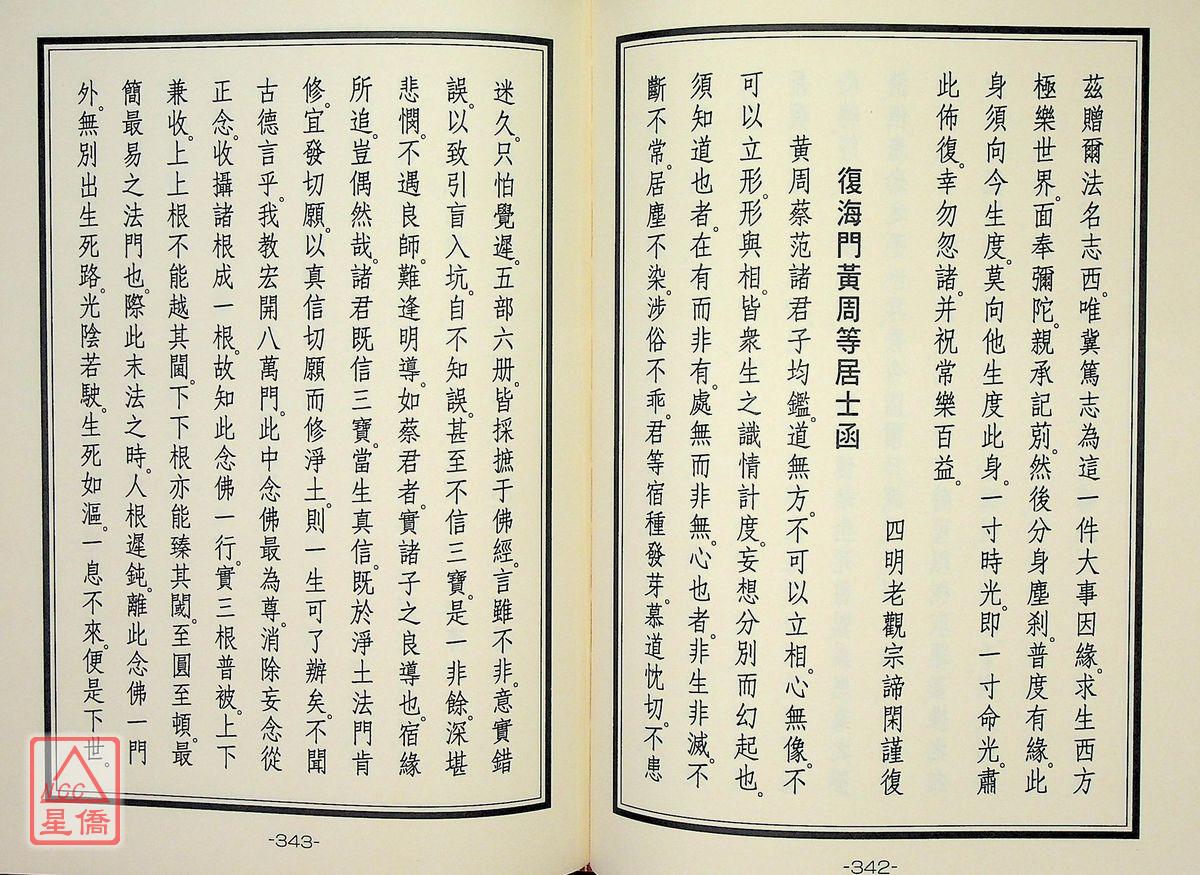 茲贈爾法名志西。唯冀篤志為這一件大事因緣。求生西方
極樂世界。面奉彌陀。親承記莂。然後分身塵刹。普度有緣。此
身須向今生度。莫向他生度此身。一寸時光。即一寸命光。肅
此佈復。幸勿忽諸。并祝常樂百益。
四明老觀宗諦閑謹復
復海門黃周等居士函
黃周蔡范諸君子均鑑。道無方。不可以立相。心無像。不
可以立形。形與相。皆衆生之識情計度。妄想分別而幻起也。
須知道也者。在有而非有。處無而非無。心也者。非生非滅。不
斷不常。居塵不染。涉俗不乖。君等宿種發芽。慕道忱切。不患
-342-
迷久。只怕覺遲。五部六册。皆採摭于佛經。言雖不非。意實錯
誤。以致引盲入坑。自不知誤。甚至不信三寶。是一非餘。深堪
悲憫。不遇良師。難逢明導。如蔡君者。實諸子之良導也。宿緣
所追。豈偶然哉。諸君既信三寶。當生真信。既於淨土法門肯
修。宜發切願。以真信切願而修淨土。則一生可了辦矣。不聞
古德言乎。我教宏開八萬門。此中念佛最為尊。消除妄念從
正念。收攝諸根成一根。故知此念佛一行。實三根普被。上下
兼收。上上根不能越其閫。下下根亦能臻其閾。至圓至頓。最
簡最易之法門也。際此末法之時。人根遲鈍。離此念佛一門
外。無別出生死路。光陰若駛。生死如漚。一息不來。便是下世。
-343-
NCC
星僑